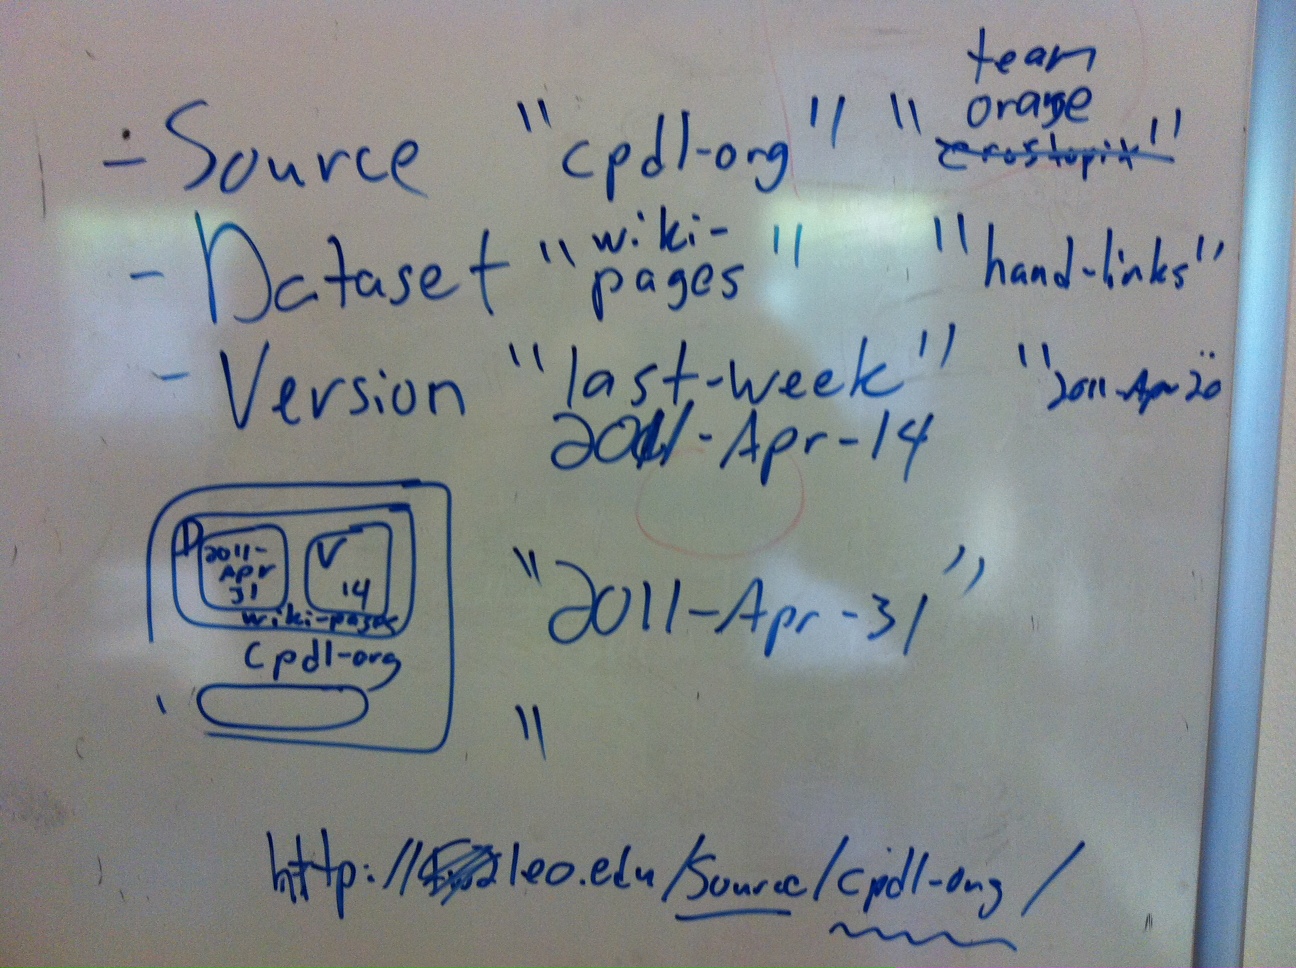 team
orange
- Source "cpdl-org" " "
- Dataset "wiki-pages" "hand-links"
- Version "last-week" "2011-Apr 20"
2011-Apr-14
D 2011-Apr 31 V 14
wiki-pages
cpdl-org
"2011-Apr-31"
"
http:// leo.edu/source/cpdl-org/